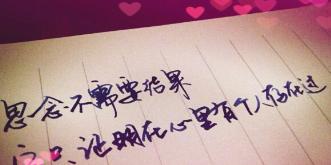 思念不需要结果
它只证明在心里有个人存在过